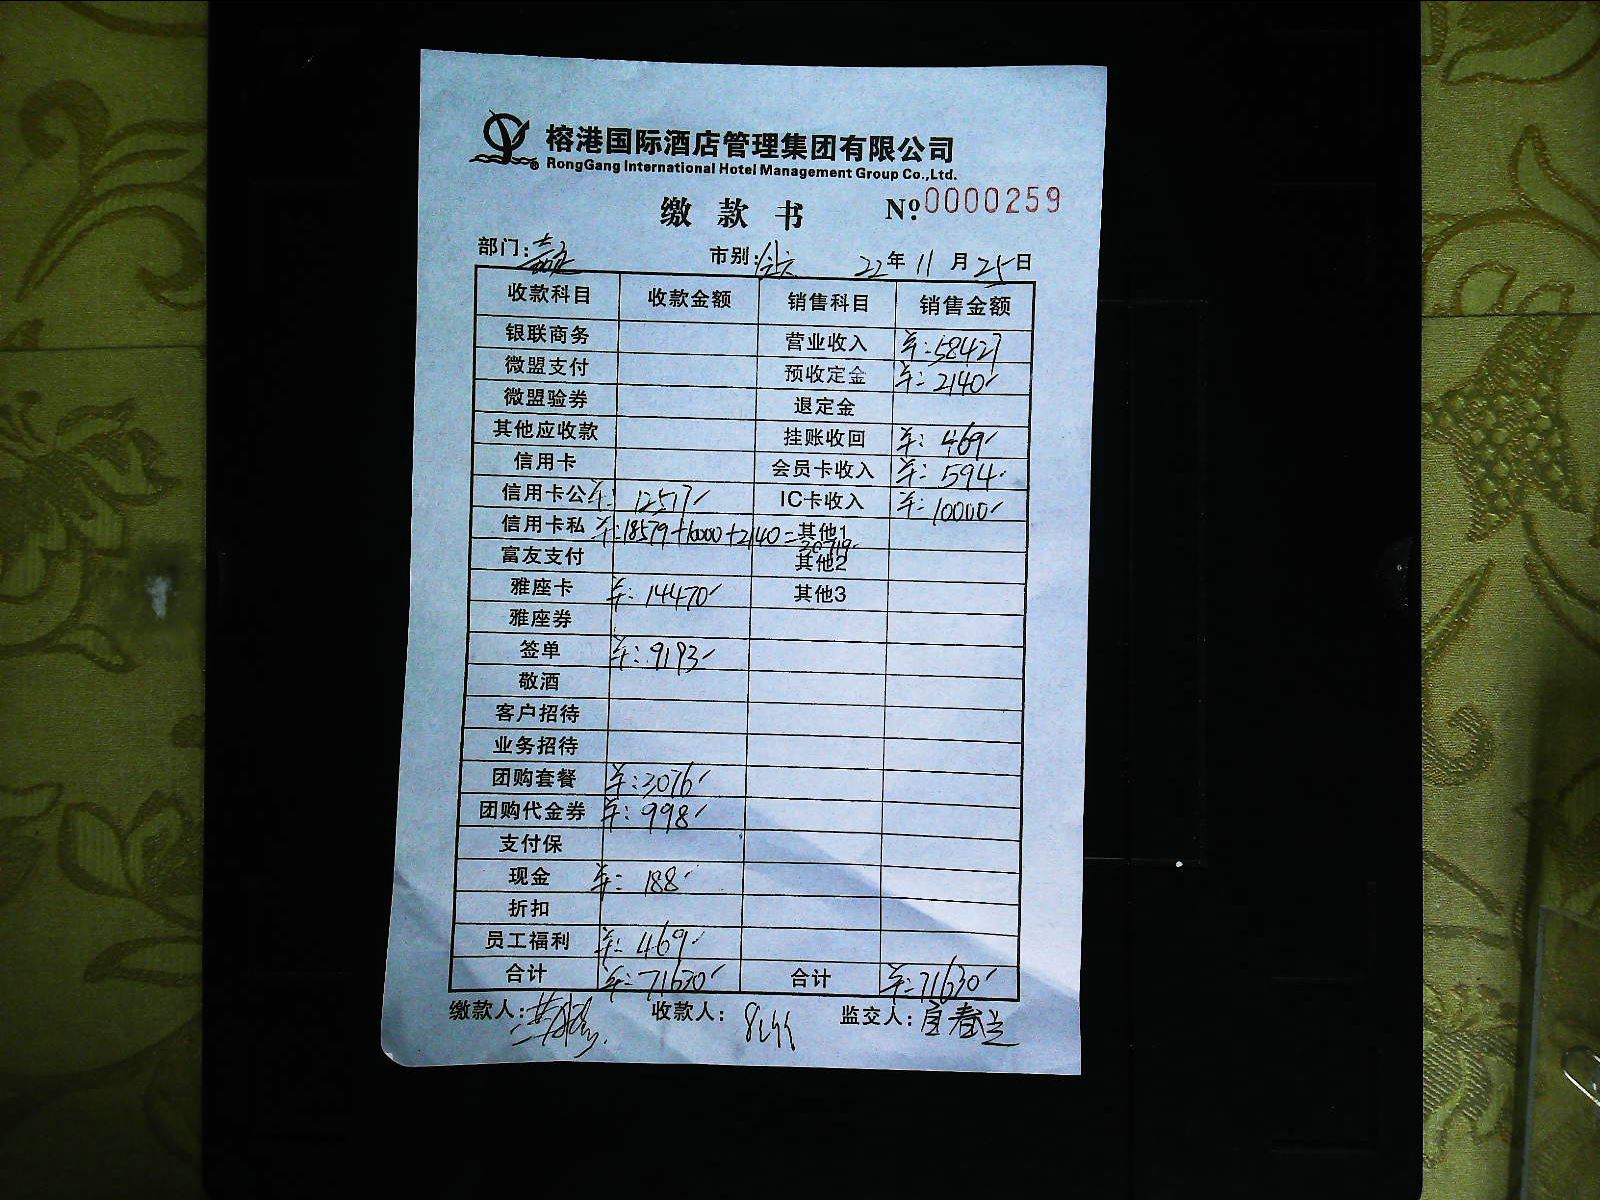 榕港国际酒店管理集团有限公司
RongGang International Hotel Management Group Co.,Ltd.
缴款书 №0000259
部门: 市别: 22年11月25日
收款科目 收款金额 销售科目 销售金额
银联商务 营业收入 ¥:58427
微盟支付 预收定金 ¥:2140
微盟验券 退定金
其他应收款 挂账收回 ¥:469
信用卡 会员卡收入 ¥:594
信用卡公 ¥:12517 IC卡收入 ¥:10000
信用卡私 ¥:18579+10000+2140=30719 其他1
富友支付 其他2
雅座卡 ¥:14470 其他3
雅座券
签单 ¥:9193
敬酒
客户招待
业务招待
团购套餐 ¥:3076
团购代金券 ¥:998
支付保
现金 ¥:188
折扣
员工福利 ¥:469
合计 ¥:71630 合计 ¥:71630
缴款人: 收款人: 监交人:宜春兰